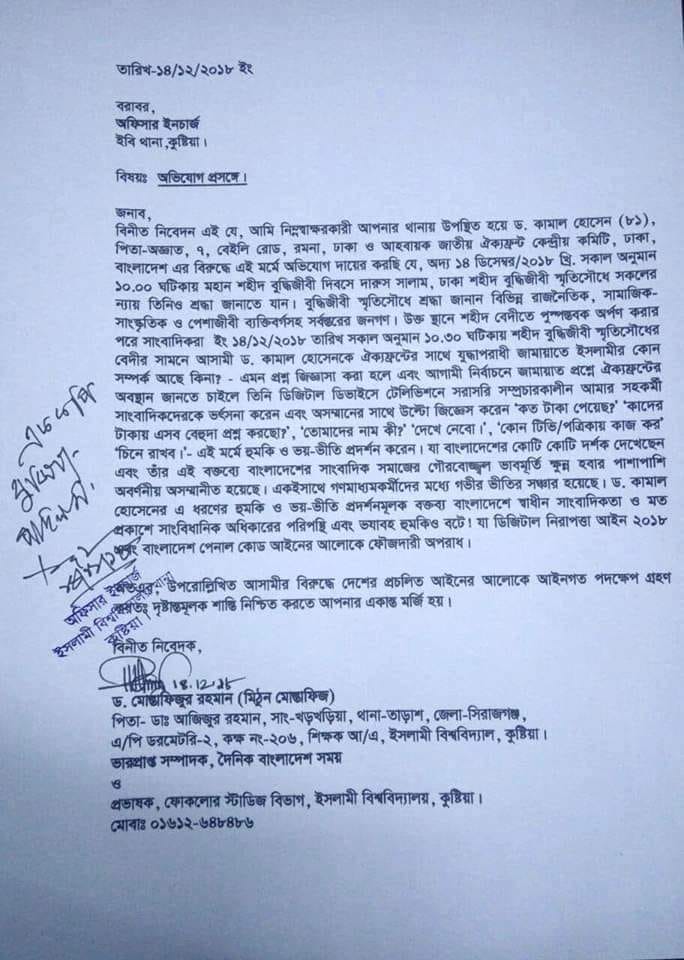 তারিখ-১৪/১২/২০১৮ ইং
বরাবর,
অফিসার ইনচার্জ
ইবি থানা ,কুষ্টিয়া ।
বিষয়ঃ অভিযোগ প্রসঙ্গে ।
জনাব,
বিনীত নিবেদন এই যে, আমি নিম্নস্বাক্ষরকারী আপনার থানায় উপস্থিত হয়ে ড. কামাল হোসেন (৮১),
পিতা-অজ্ঞাত, ৭, বেইলি রোড, রমনা, ঢাকা ও আহবায়ক জাতীয় ঐক্যফ্রন্ট কেন্দ্রীয় কমিটি, ঢাকা,
বাংলাদেশ এর বিরুদ্ধে এই মর্মে অভিযোগ দায়ের করছি যে, অদ্য ১৪ ডিসেম্বর/২০১৮ খ্রি. সকাল অনুমান
১০.০০ ঘটিকায় মহান শহীদ বুদ্ধিজীবী দিবসে দারুস সালাম, ঢাকা শহীদ বুদ্ধিজীবী স্মৃতিসৌধে সকলের
ন্যায় তিনিও শ্রদ্ধা জানাতে যান । বুদ্ধিজীবী স্মৃতিসৌধে শ্রদ্ধা জানান বিভিন্ন রাজনৈতিক, সামাজিক-
সাংস্কৃতিক ও পেশাজীবী ব্যক্তিবর্গসহ সর্বস্তরের জনগণ । উক্ত স্থানে শহীদ বেদীতে পুষ্পস্তবক অর্পণ করার
পরে সাংবাদিকরা ইং ১৪/১২/২০১৮ তারিখ সকাল অনুমান ১০.৩০ ঘটিকায় শহীদ বুদ্ধিজীবী স্মৃতিসৌধের
বেদীর সামনে আসামী ড. কামাল হোসেনকে ঐক্যফ্রন্টের সাথে যুদ্ধাপরাধী জামায়াতে ইসলামীর কোন
সম্পর্ক আছে কিনা? - এমন প্রশ্ন জিজ্ঞাসা করা হলে এবং আগামী নির্বাচনে জামায়াত প্রশ্নে ঐক্যফ্রন্টের
অবস্থান জানতে চাইলে তিনি ডিজিটাল ডিভাইসে টেলিভিশনে সরাসরি সম্প্রচারকালীন আমার সহকর্মী
সাংবাদিকদেরকে ভর্ৎসনা করেন এবং অসম্মানের সাথে উল্টো জিজ্ঞেস করেন ‘কত টাকা পেয়েছ?’ ‘কাদের
টাকায় এসব বেহুদা প্রশ্ন করছো?’, ‘তোমাদের নাম কী?’ ‘দেখে নেবো ।’, ‘কোন টিভি/পত্রিকায় কাজ কর’
‘চিনে রাখব ।’- এই মর্মে হুমকি ও ভয়-ভীতি প্রদর্শন করেন । যা বাংলাদেশের কোটি কোটি দর্শক দেখেছেন
এবং তাঁর এই বক্তব্যে বাংলাদেশের সাংবাদিক সমাজের গৌরবোজ্জ্বল ভাবমূর্তি ক্ষুন্ন হবার পাশাপাশি
অবর্ণনীয় অসম্মানীত হয়েছে । একইসাথে গণমাধ্যমকর্মীদের মধ্যে গভীর ভীতির সঞ্চার হয়েছে । ড. কামাল
হোসেনের এ ধরণের হুমকি ও ভয়-ভীতি প্রদর্শনমূলক বক্তব্য বাংলাদেশে স্বাধীন সাংবাদিকতা ও মত
প্রকাশে সাংবিধানিক অধিকারের পরিপন্থি এবং ভয়াবহ হুমকিও বটে! যা ডিজিটাল নিরাপত্তা আইন ২০১৮
এবং বাংলাদেশ পেনাল কোড আইনের আলোকে ফৌজদারী অপরাধ ।
অতএব, উপরোল্লিখিত আসামীর বিরুদ্ধে দেশের প্রচলিত আইনের আলোকে আইনগত পদক্ষেপ গ্রহণ
করতঃ দৃষ্টান্তমূলক শাস্তি নিশ্চিত করতে আপনার একান্ত মর্জি হয় ।
অফিসার ইনচার্জ
ইসলামী বিশ্ববিদ্যালয় থানা
কুষ্টিয়া ।
বিনীত নিবেদক,
ড. মোস্তাফিজুর রহমান (মিঠুন মোস্তাফিজ)
পিতা- ডাঃ আজিজুর রহমান, সাং-খড়খড়িয়া, থানা-তাড়াশ, জেলা-সিরাজগঞ্জ,
এ/পি ডরমেটরি-২, কক্ষ নং-২০৬, শিক্ষক আ/এ, ইসলামী বিশ্ববিদ্যাল, কুষ্টিয়া ।
ভারপ্রাপ্ত সম্পাদক, দৈনিক বাংলাদেশ সময়
ও
প্রভাষক, ফোকলোর স্টাডিজ বিভাগ, ইসলামী বিশ্ববিদ্যালয়, কুষ্টিয়া ।
মোবাঃ ০১৬১২-৬৪৮৪৮৬